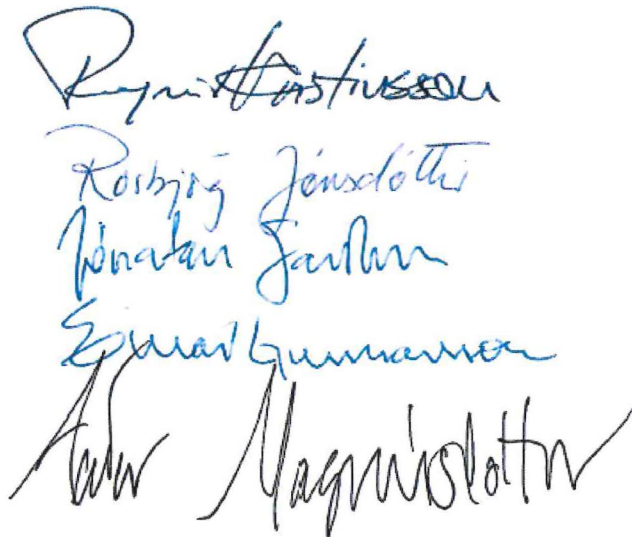 Reynir Kristinsson
Rósbjörg Jónsdóttir
Jónatan Garðarsson
Einar Gunnarsson
Auður Magnúsdóttir